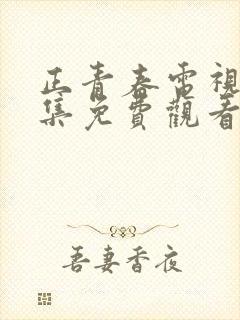 正青春電視
集免費觀看
吾妻香夜